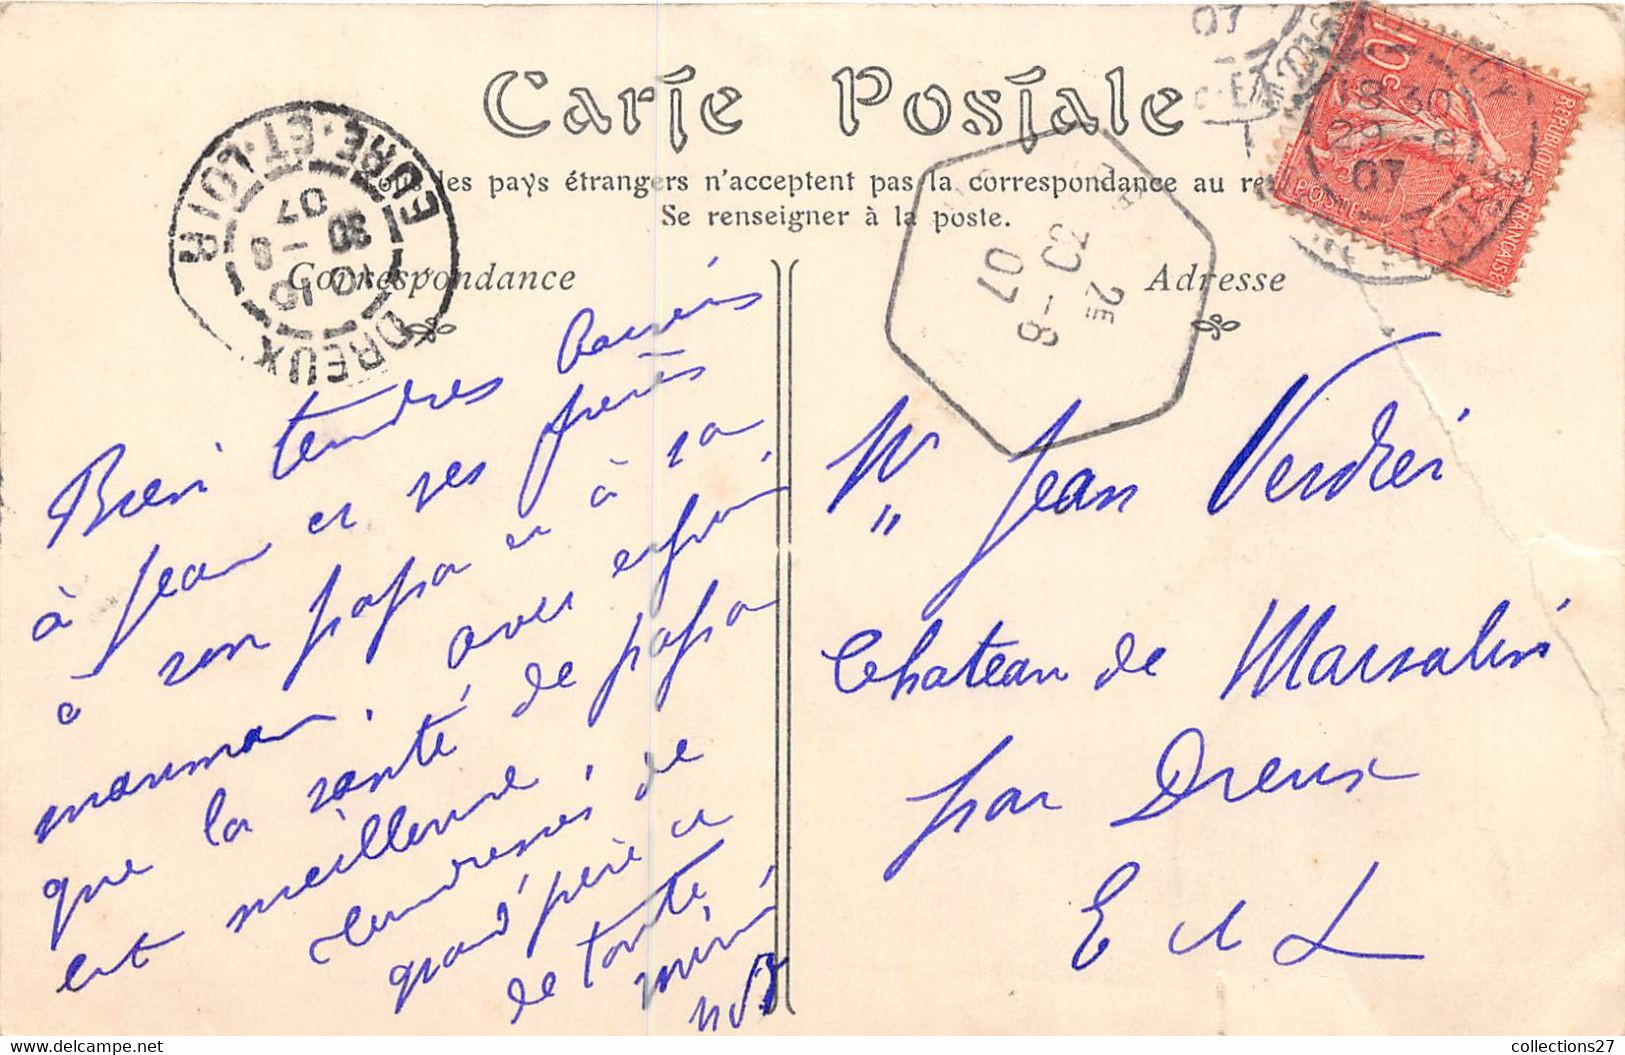 Carte Postale
Tous les pays étrangers n'acceptent pas la correspondance au re
Se renseigner à la poste.
Correspondance
Adresse
DREUX
EURE-ET-LOIR
10 10
30 -8
07
2E
30 -8
07
18 30
29 -8
07
10c
REPUBLIQUE FRANÇAISE
POSTES
Bien tendres baisers
à Jean et ses frères
à son papa et à sa
maman. avec espoir
que la santé de papa
est meilleure.
Tendresses de
grand'père et
de toute
mimi
Mr Jean Verdier
Chateau de Marsalin
par Dreux
E et L
collections27